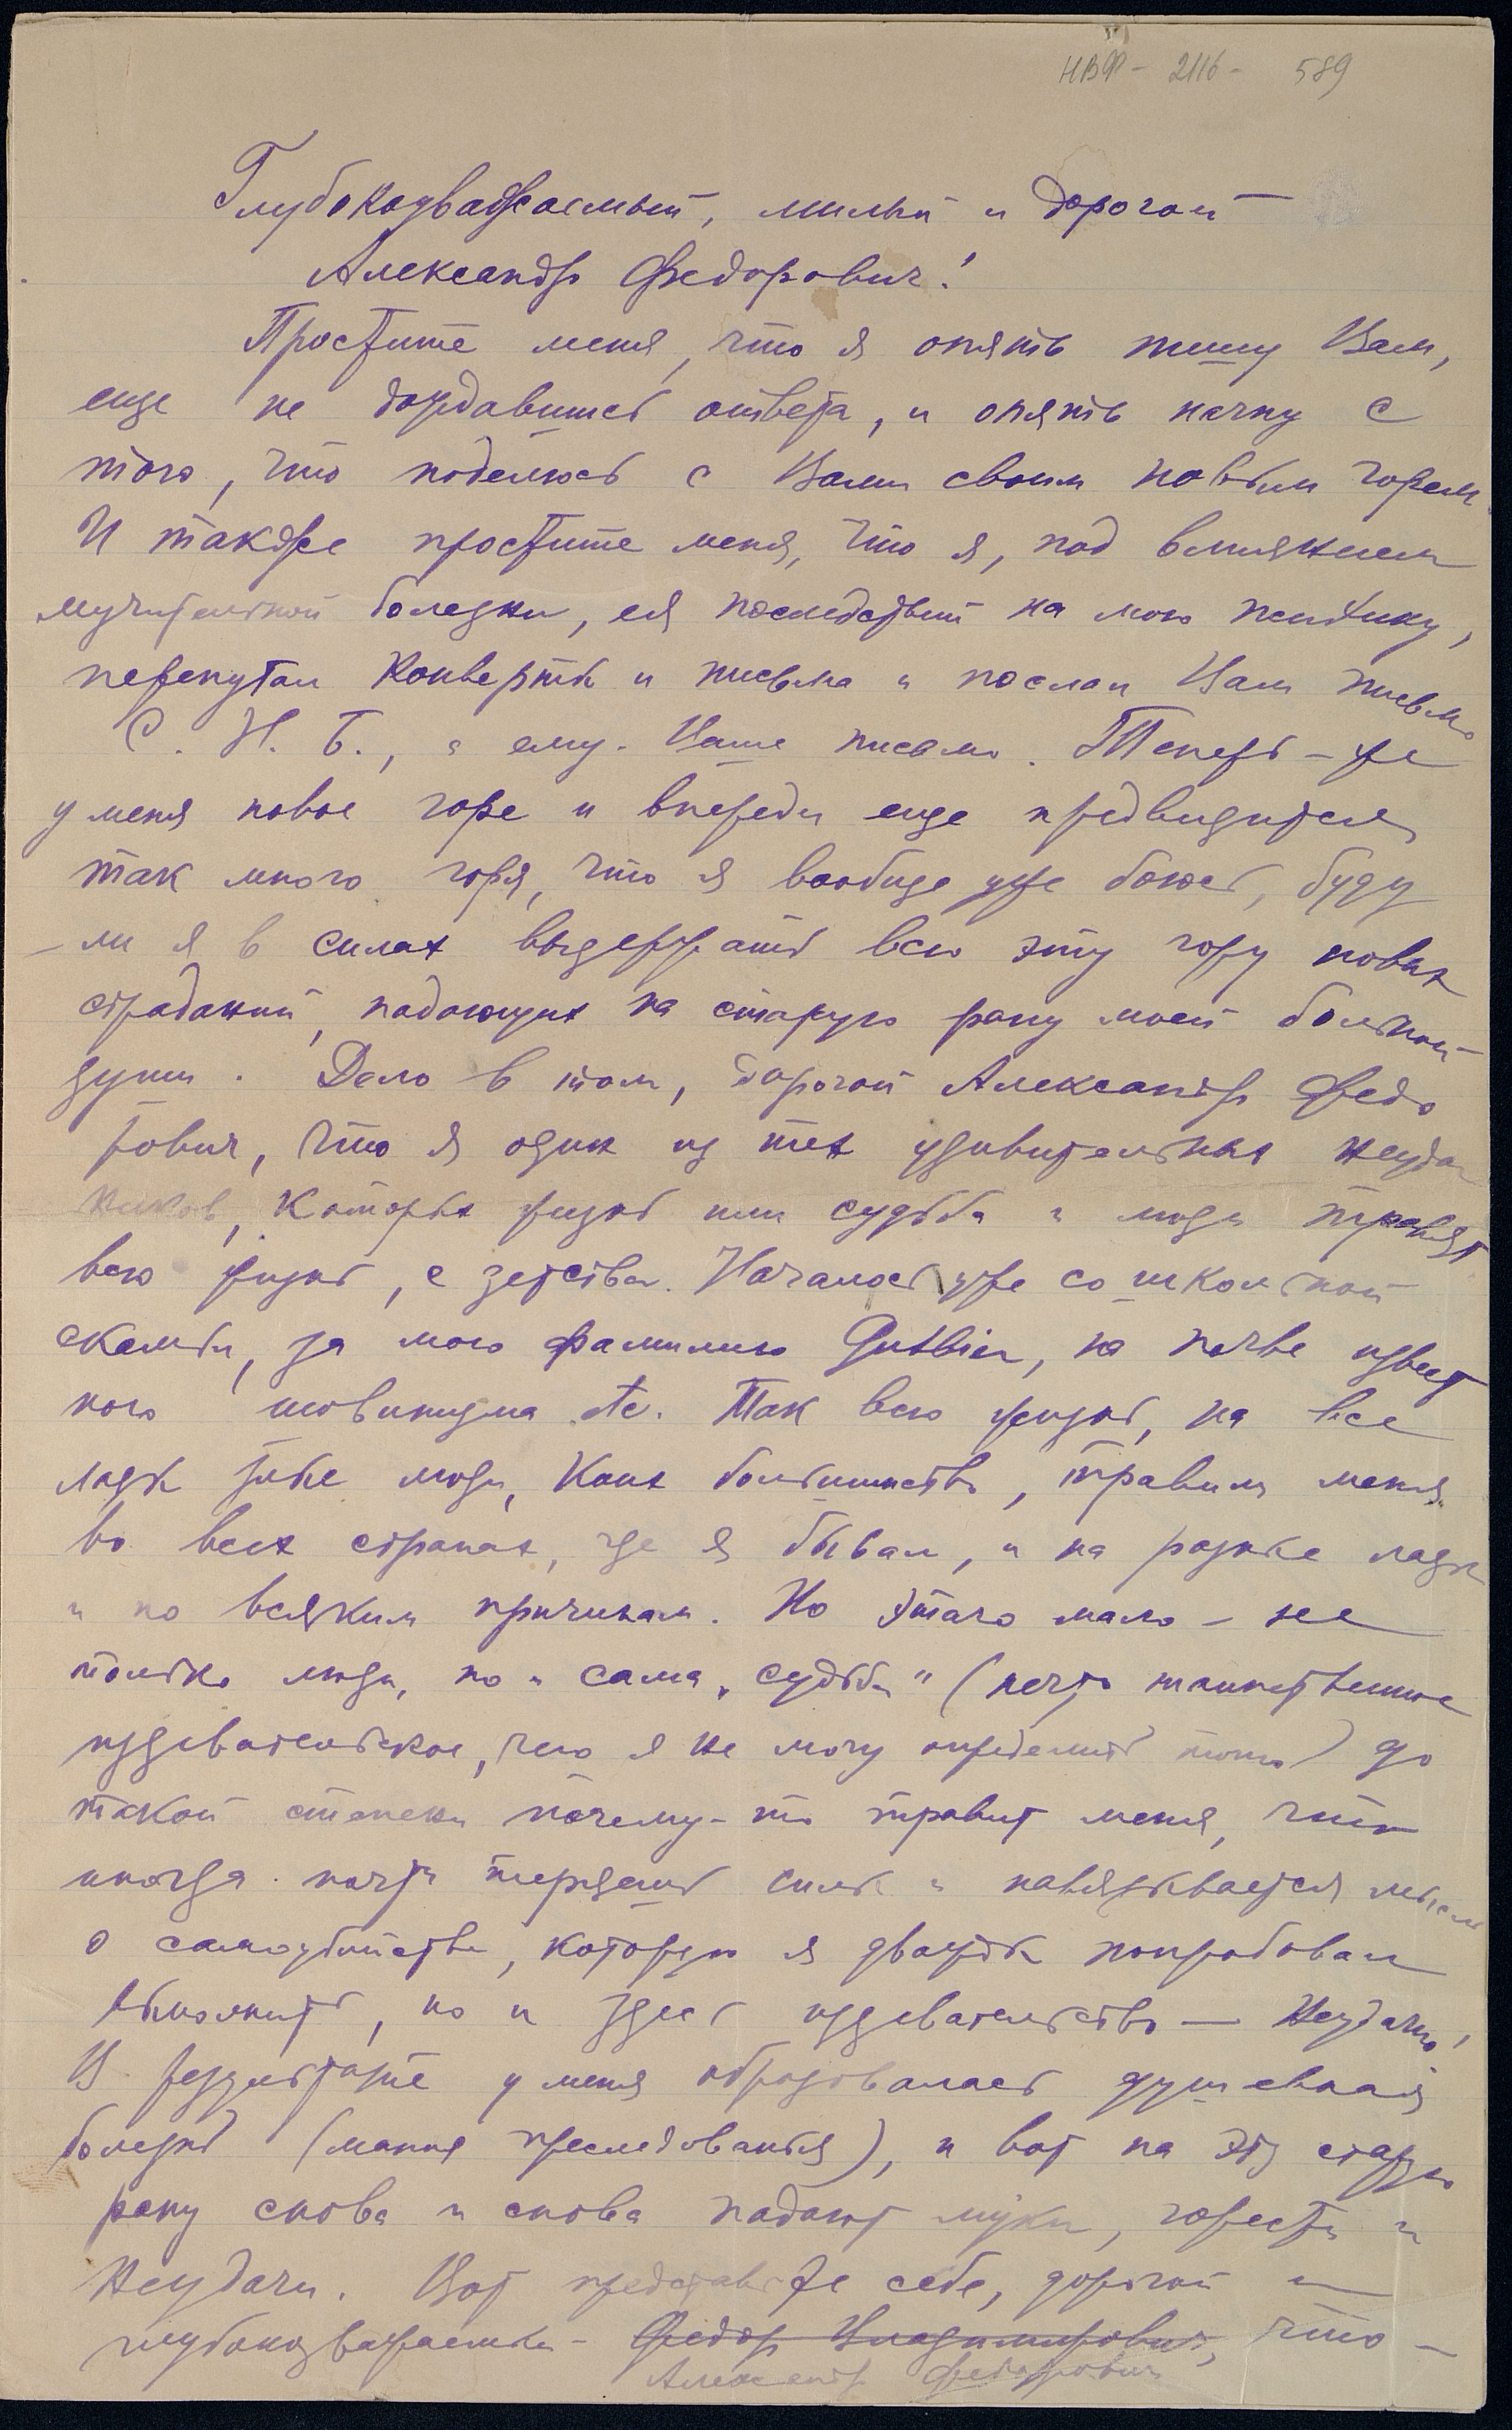 НВФ - 2116 - 589
Глубокоуважаемый, милый и дорогой
Александр Федорович!
Простите меня, что я опять пишу Вам,
еще не дождавшись ответа, и опять начну с
того, что поделюсь с Вами своим новым горем.
И также простите меня, что я, под влиянием
мучительной болезни, ея последствий на мою психику,
перепутал конверты и письма и послал Вам письмо
С. Н. Б., а ему - Ваше письмо. Теперь-же
у меня новое горе и впереди еще предвидится
так много горя, что я вообще уже боюсь, буду
-ли я в силах выдержать всю эту гору новых
страданий, падающих на старую рану моей больной
души. Дело в том, дорогой Александр Федо
рович, что я один из тех удивительных неудач
ников, которых жизнь или судьба и люди травят
всю жизнь, с детства. Началось уже со школьной
скамьи, за мою фамилию Gutbier, на почве извест
ного шовинизма etc. Так всю жизнь, на все
лады люди, коих большинство, травили меня
во всех странах, где я бывал, и на разные лады
и по всяким причинам. Но этого мало - не
только люди, но и сама "судьба" (нечто таинственное
издевательское, чего я не могу определить точно) до
такой степени почему-то травит меня, что
иногда почти нету сил и навязывается мысль
о самоубийстве, которую я дважды попробовал
выполнить, но и здесь издевательство — неудачно!
В результате у меня образовалась душевная
болезнь (мания преследования), и вот на эту старую
рану снова и снова падают муки, горести и
неудачи. Вот представьте себе, дорогой и
глубокоуважаемый - Федор Владимирович, что -
Александр Федорович